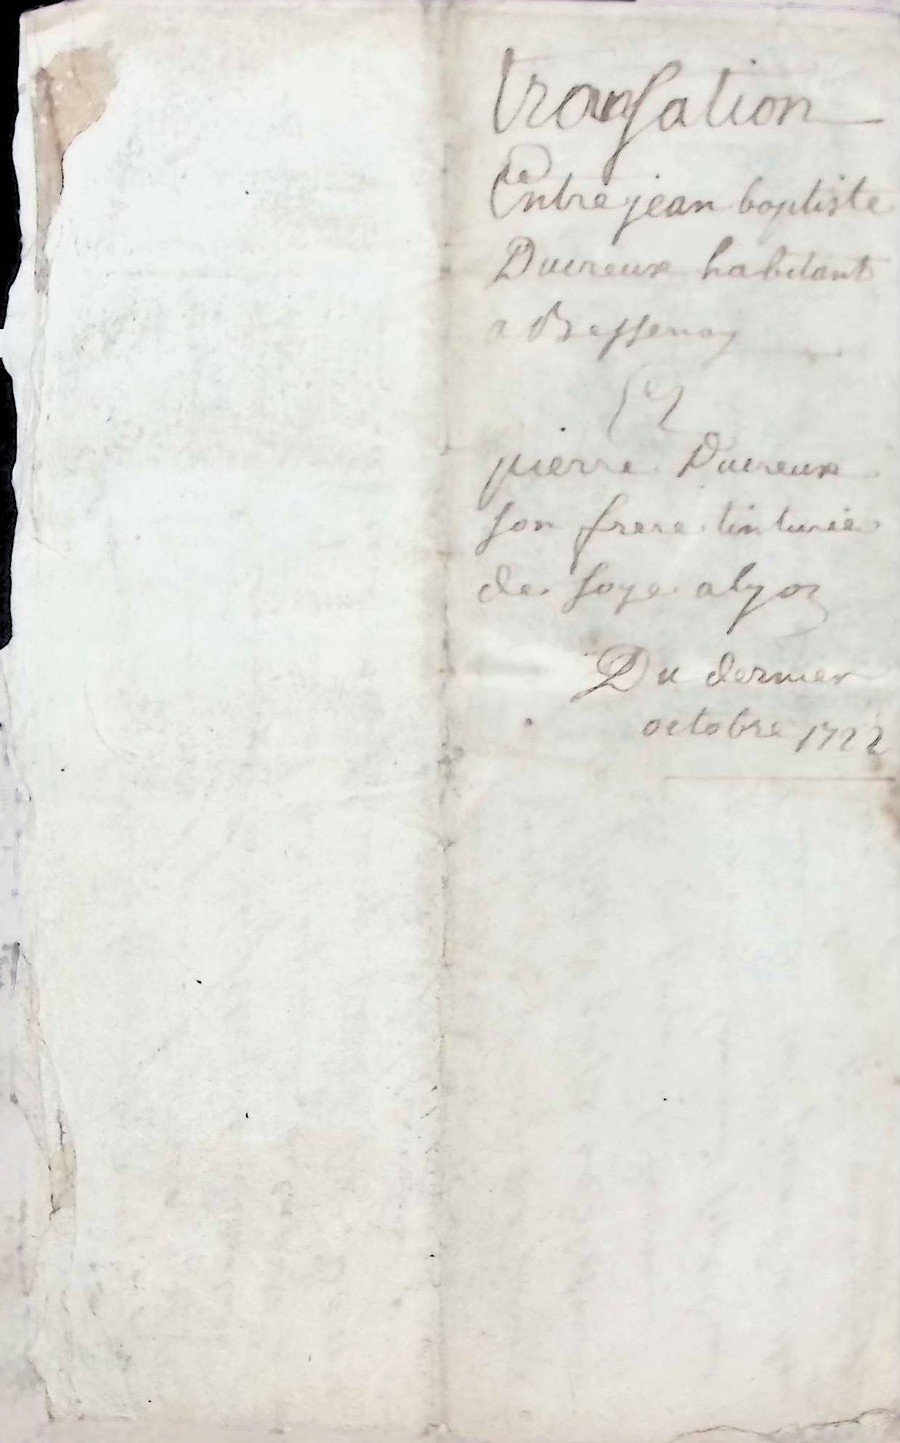 transsation
Entre jean baptiste
Ducreux habitant
a Bessenay
Et
pierre Ducreux
son frere tinturie
de soye a lyon
Du dernier
octobre 1722